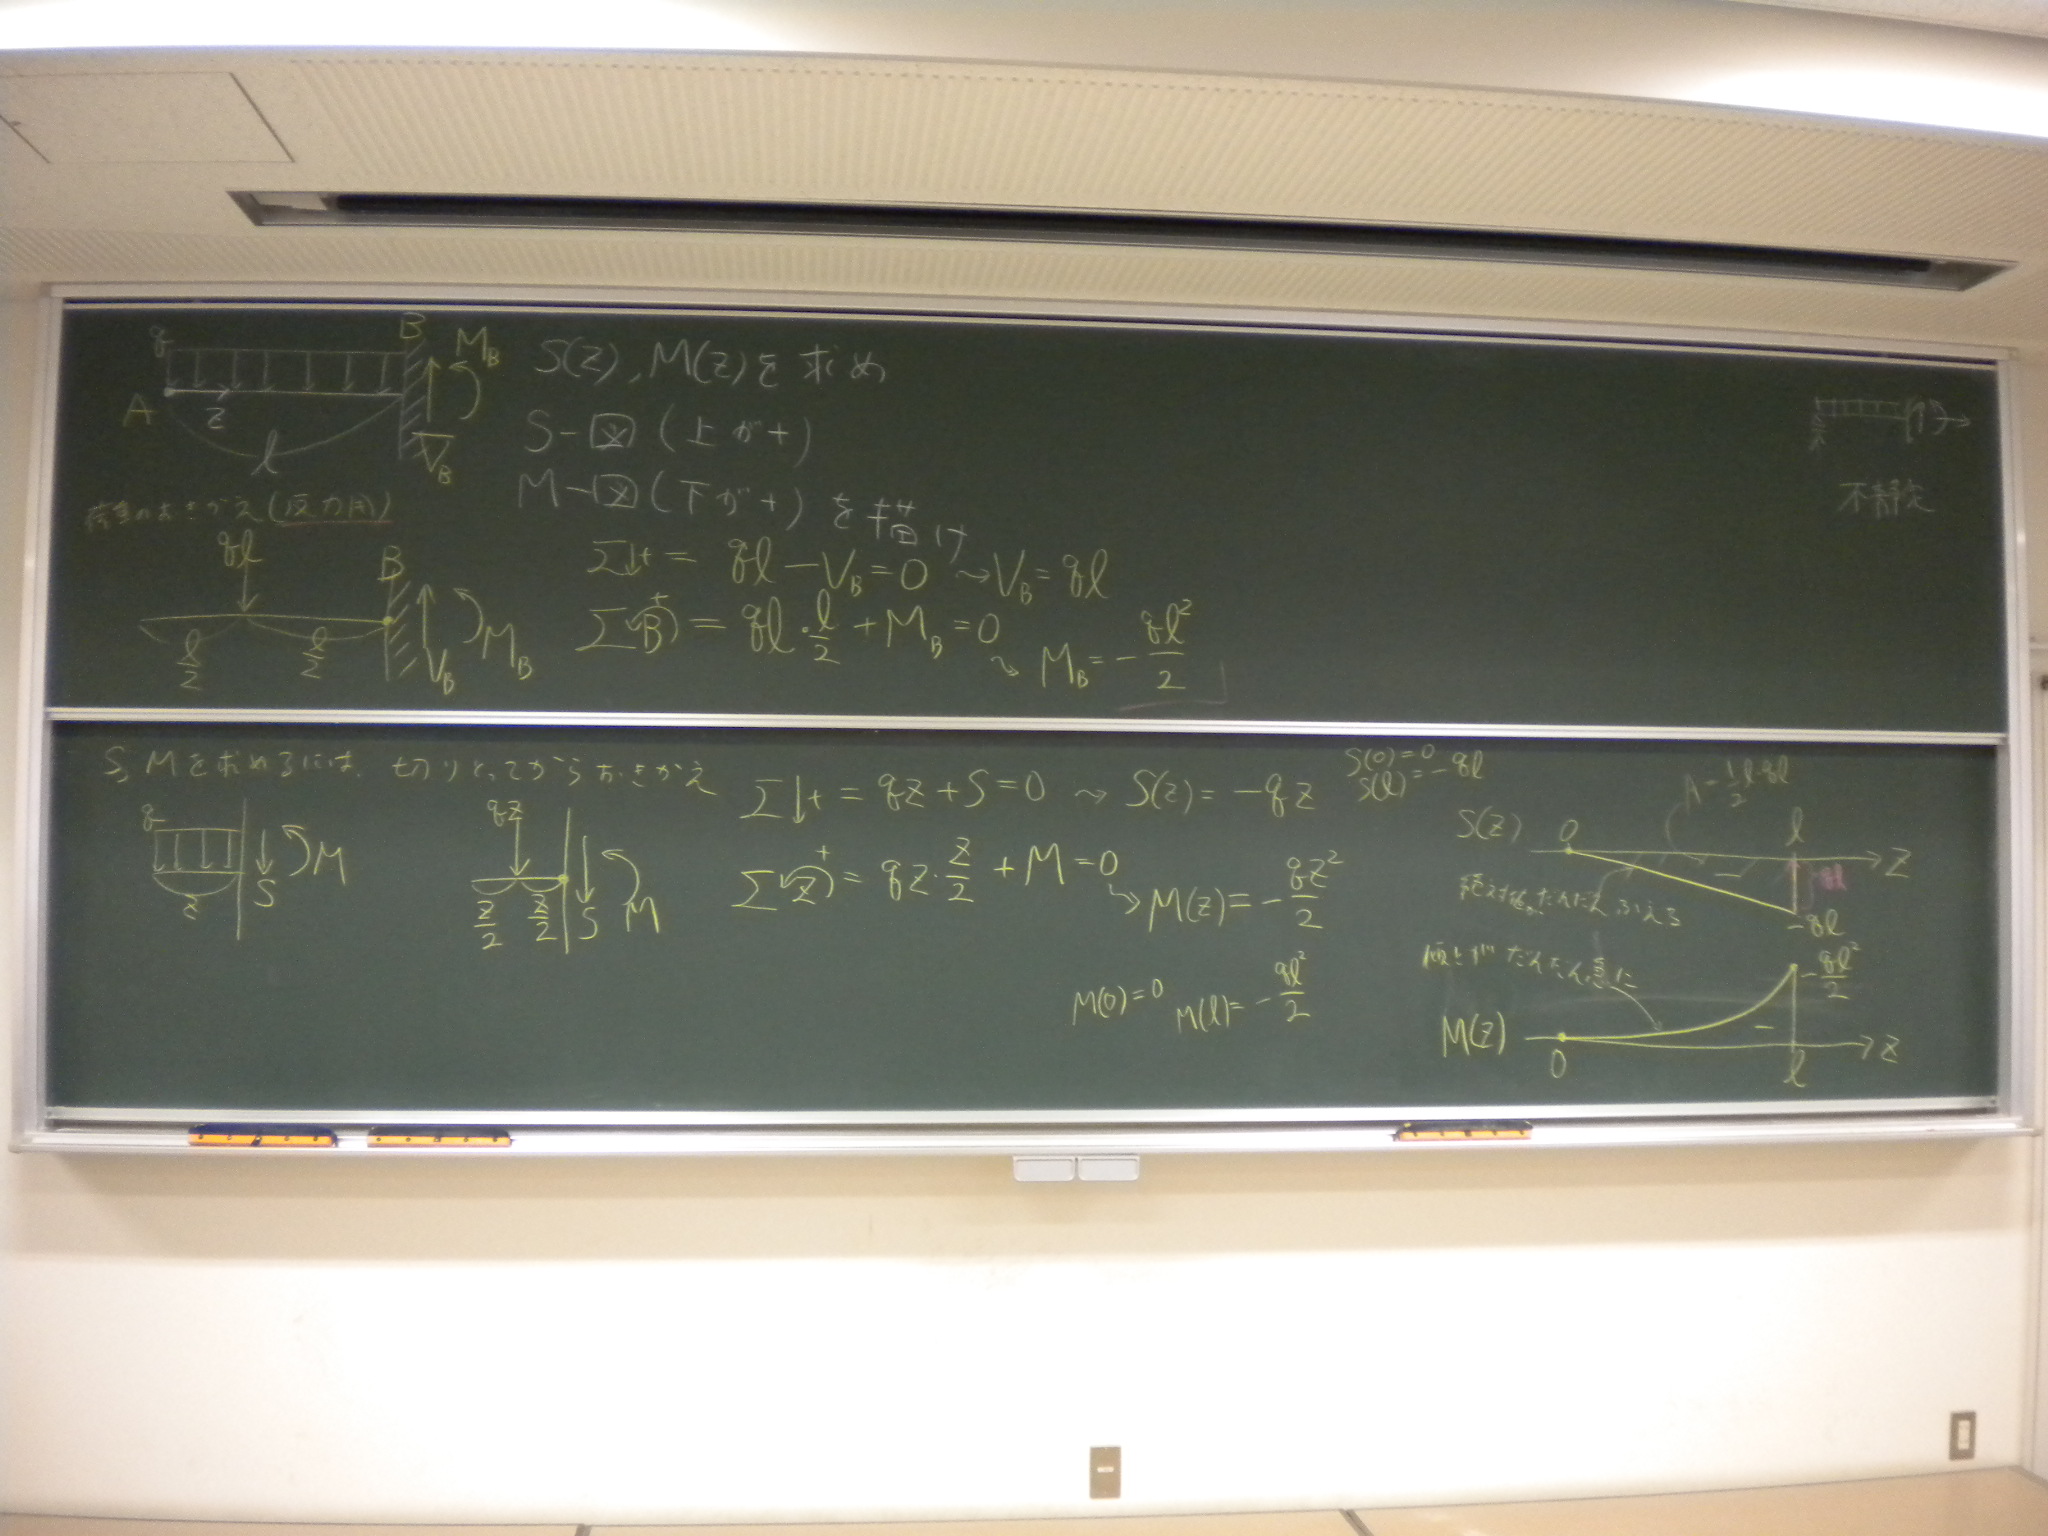 q
B
M_B
A
z
l
V_B
S(z), M(z)を求め
S-図(上が+)
M-図(下が+)を描け
荷重のおきかえ(反力用)
ql
B
l/2
l/2
V_B
M_B
Σ↓+ = ql - V_B = 0 ⇝ V_B = ql
Σ B + = ql・l/2 + M_B = 0
⇝ M_B = - ql²/2
不静定
S, Mを求めるには、切りとってからおきかえ
q
z
S
M
qz
z/2
z/2
S
M
Σ↓+ = qz + S = 0 ⇝ S(z) = -qz
Σ z + = qz・z/2 + M = 0
↳ M(z) = - qz²/2
M(0) = 0 M(l) = - ql²/2
S(0) = 0
S(l) = -ql
A = 1/2 l・ql
S(z)
0
l
z
-
ql
-ql
絶対値がだんだんふえる
傾きがだんだん急に
- ql²/2
M(z)
0
-
l
z